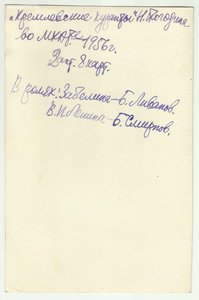 „Кремлевские куранты" Н. Погодина
во МХАТе 1956г.
2 акт. 8 карт.
В ролях: Забелина – Б. Ливанов.
В.И. Ленина – Б. Смирнов.